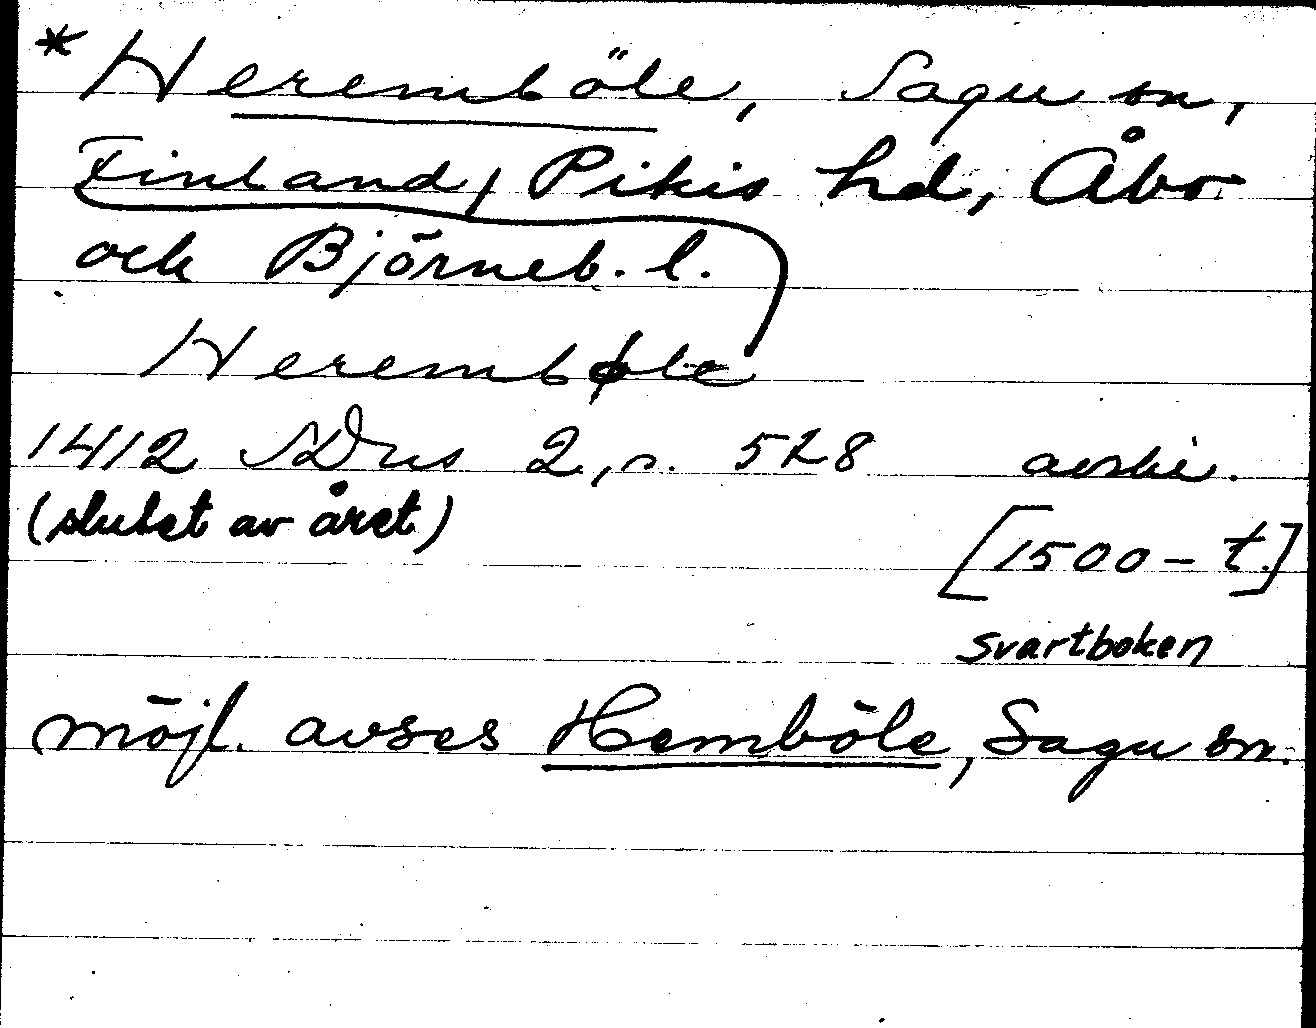 *Heremböle, Sagu sn,
Finland, Pikis hd, Åbo
och Björneb. l.
Herembøle
1412 SDns 2, s. 528 avskr.
(slutet av året)
[1500-t.]
svartboken
möjl. avses Hemböle, Sagu sn.